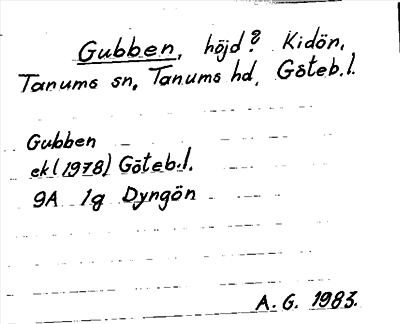 Gubben, höjd? Kidön,
Tanums sn, Tanums hd, Göteb.l.
Gubben
ekl (1978) Göteb.l.
9A 1g Dyngön
A. G. 1983.